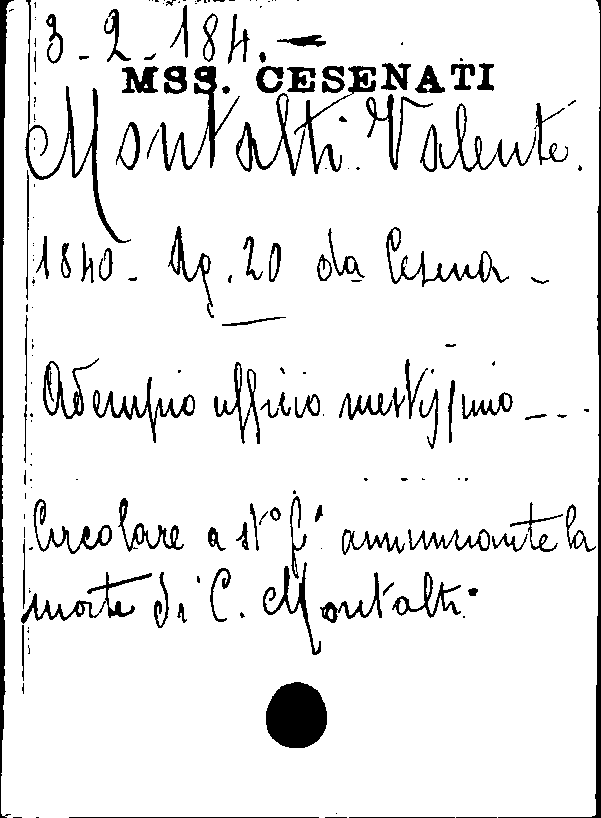 3-2-184.-
MSS. CESENATI
Montalti Valente.
1840 - Ag. 20 da Cesena -
Adempio ufficio mestissimo - - -
Circolare a st° annunziante la
morte di C. Montalti